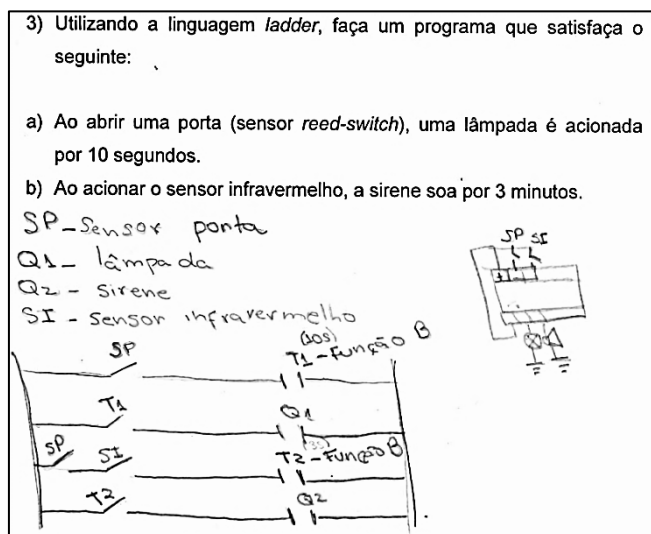 3) Utilizando a linguagem ladder, faça um programa que satisfaça o
seguinte:
a) Ao abrir uma porta (sensor reed-switch), uma lâmpada é acionada
por 10 segundos.
b) Ao acionar o sensor infravermelho, a sirene soa por 3 minutos.
SP - Sensor porta
Q1 - lâmpada
Q2 - Sirene
SI - Sensor infravermelho
SP SI
SP
T1 - Função B
T1
Q1
SP SI
T2 - Função B
T2
Q2